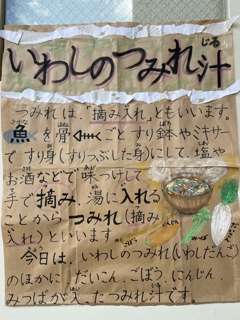 いわしのつみれ汁
じる
つみれは、「摘み入れ」ともいいます。
魚を骨ごとすり鉢やミキサー
ですり身(すりつぶした身)にして、塩や
お酒などで味つけして
手で摘み、湯に入れる
ことからつみれ(摘み
入れ)といいます
今日は、いわしのつみれ(いわしだんご)
のほかに だいこん、ごぼう、にんじん、
みつばが入ったつみれ汁です。